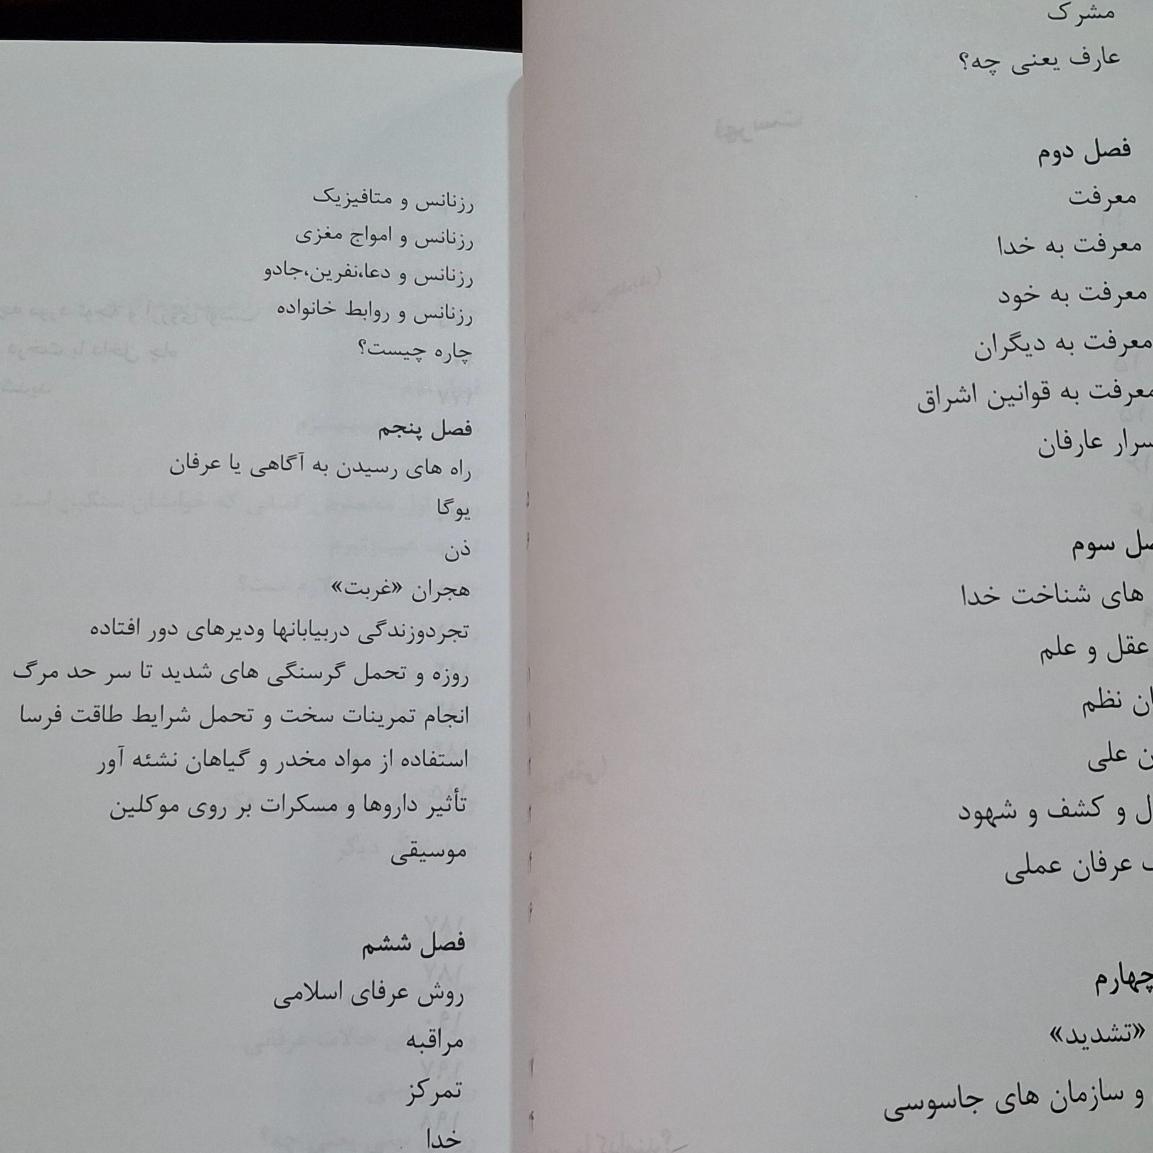 مشرک
عارف یعنی چه؟
فصل دوم
معرفت
معرفت به خدا
معرفت به خود
معرفت به دیگران
معرفت به قوانین اشراق
سوم
های شناخت خدا
عقل و علم
نظم
علی
و کشف و شهود
عرفان عملی
چهارم
«تشدید»
و سازمان های جاسوسی
رزنانس و متافیزیک
رزنانس و امواج مغزی
رزنانس و دعا،نفرین،جادو
رزنانس و روابط خانواده
چاره چیست؟
فصل پنجم
راه های رسیدن به آگاهی یا عرفان
یوگا
ذن
هجران «غربت»
تجردوزندگی دربیابانها ودیرهای دور افتاده
روزه و تحمل گرسنگی های شدید تا سر حد مرگ
انجام تمرینات سخت و تحمل شرایط طاقت فرسا
استفاده از مواد مخدر و گیاهان نشئه آور
تأثیر داروها و مسکرات بر روی موکلین
موسیقی
فصل ششم
روش عرفای اسلامی
مراقبه
تمرکز
خدا